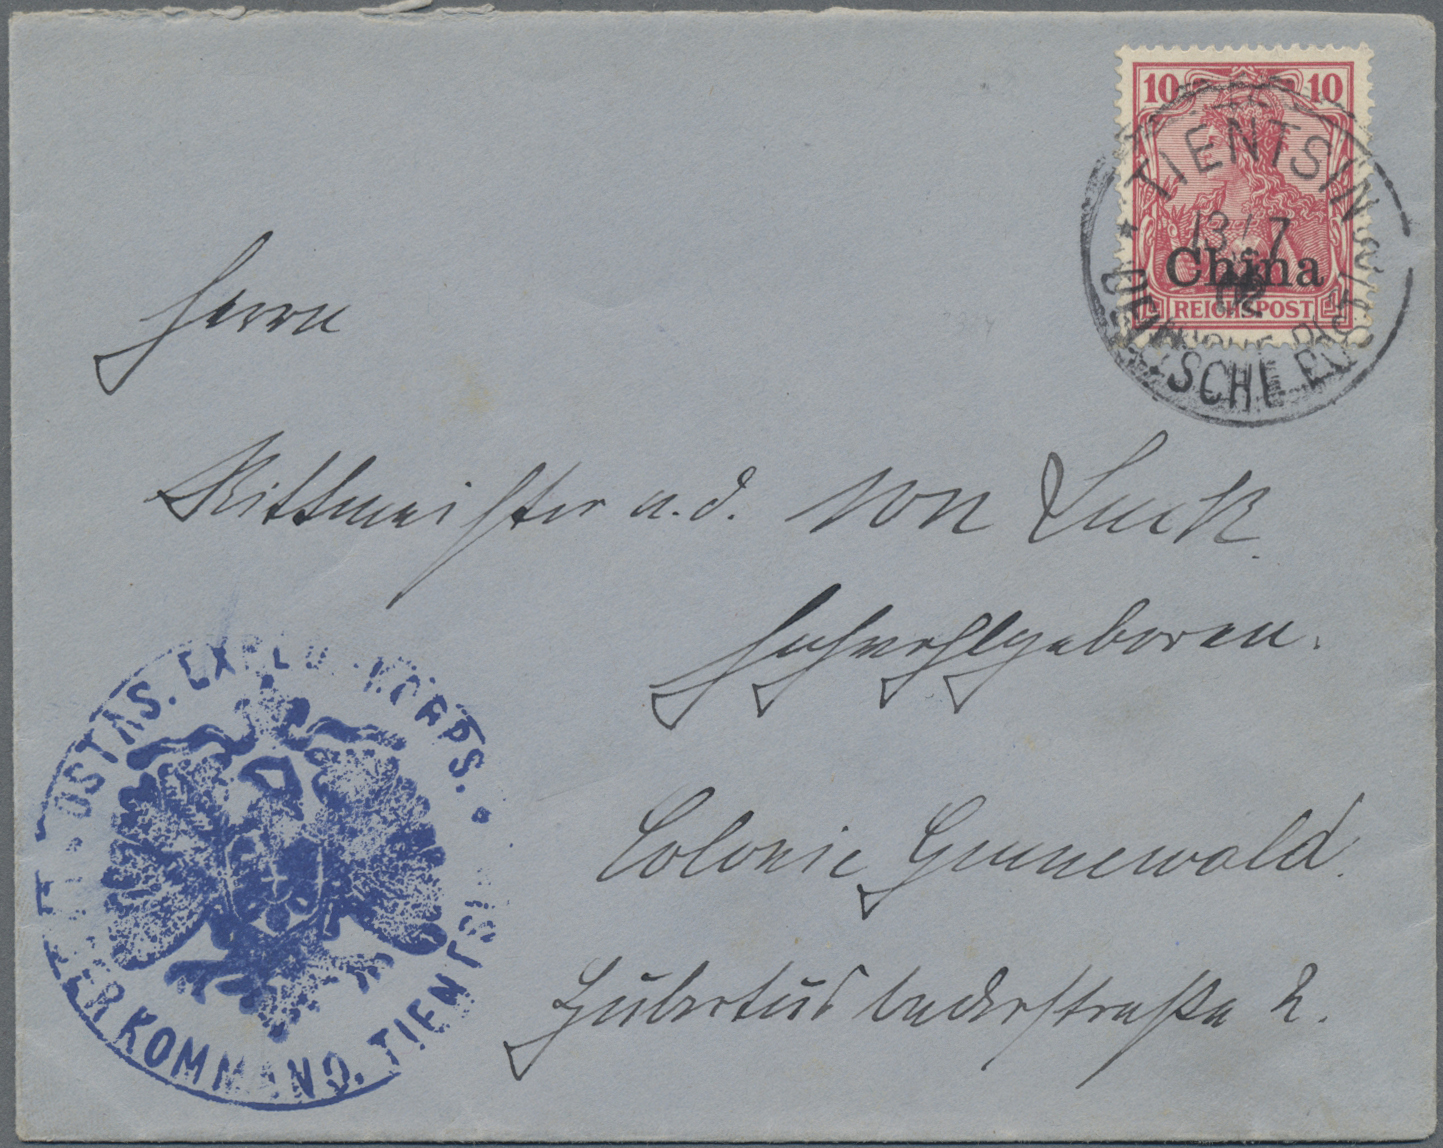 10 10
China
REICHSPOST
TIENTSIN
13/7
02
* DEUTSCHE POST *
Herrn
Rittmeister a. d. von Luck
Hochwohlgeboren.
Colonie Grunewald.
Hubertusbaderstraße 2.
OSTAS. EXPED. KORPS.
KOMMAND. TIENTSIN